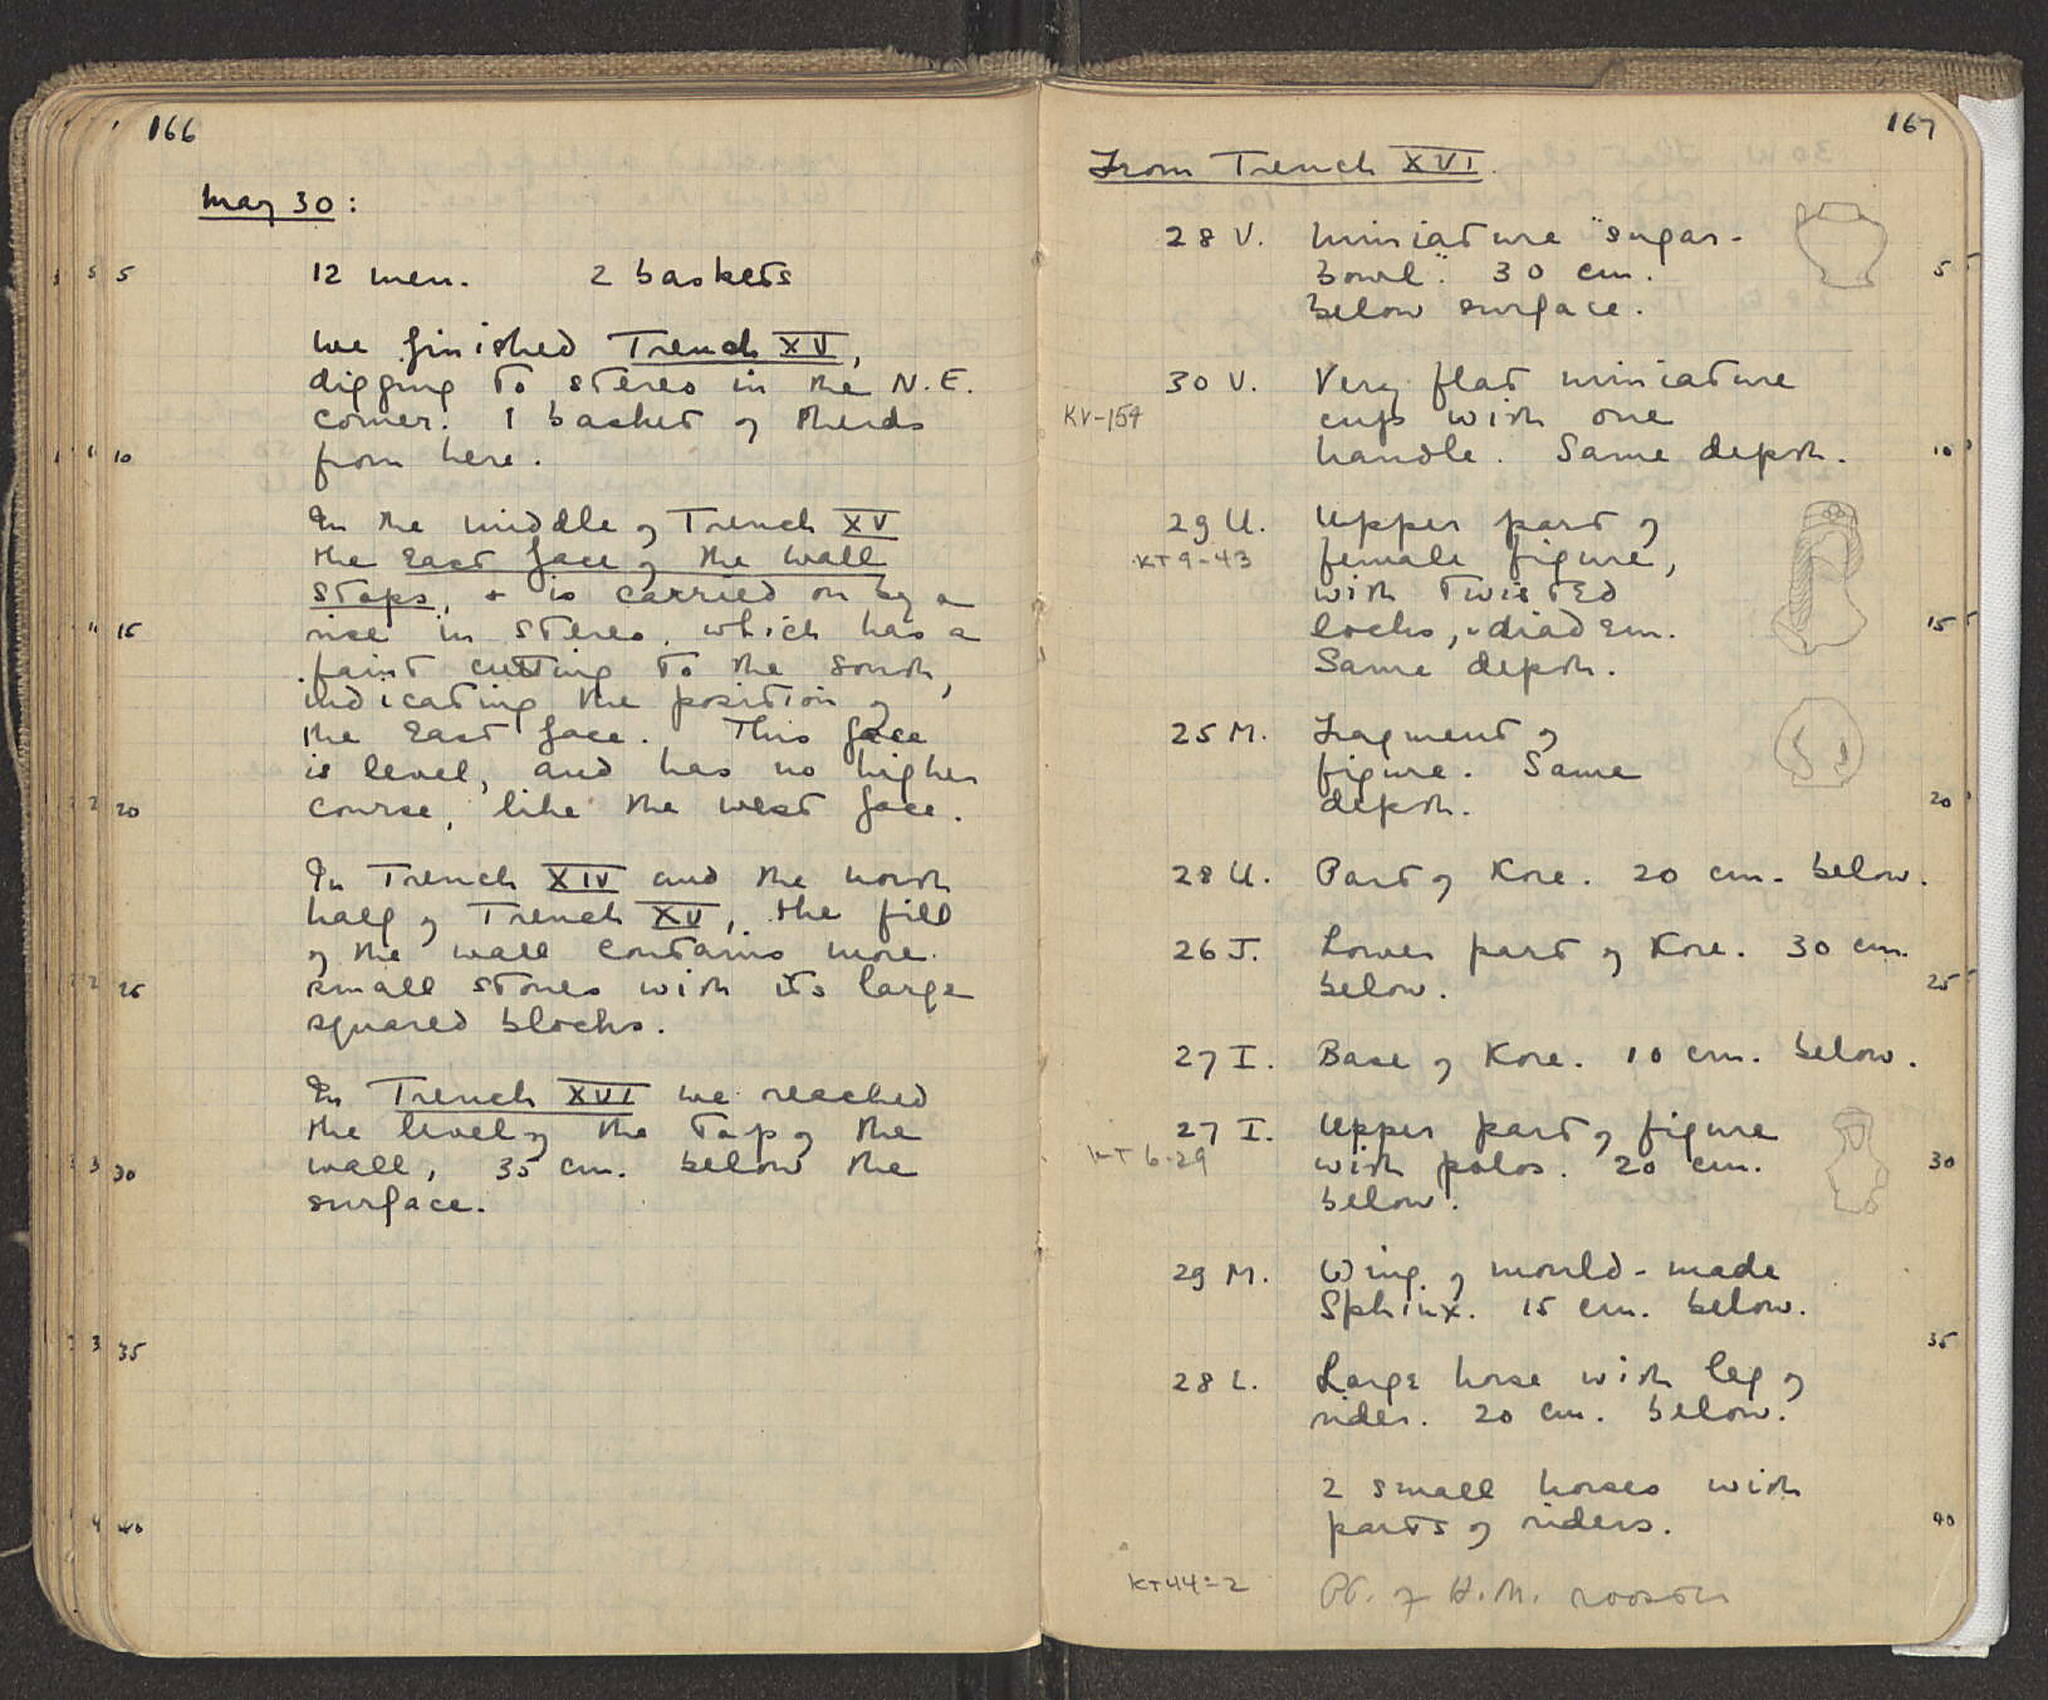 166
May 30:
12 men. 2 baskets
We finished Trench XV,
digging to stereo in the N.E.
corner. 1 basket of sherds
from here.
In the middle of Trench XV
the East face of the wall
stops, + is carried on by a
rise in stereo, which has a
faint cutting to the south,
indicating the position of
the East face. This face
is level, and has no higher
course, like the west face.
In Trench XIV and the north
half of Trench XV, the fill
of the wall contains more
small stones with its large
squared blocks.
In Trench XVI we reached
the level of the top of the
wall, 35 cm. below the
surface.
5
10
15
20
25
30
35
40
167
From Trench XVI.
28 V. Miniature "sugar-
bowl". 30 cm.
below surface.
30 V. Very flat miniature
KV-154 cup with one
handle. Same depth.
29 U. Upper part of
KT9-43 female figure,
with twisted
locks, + diadem.
Same depth.
25 M. Fragment of
figure. Same
depth.
28 U. Part of Kore. 20 cm. below.
26 J. Lower part of Kore. 30 cm.
below.
27 I. Base of Kore. 10 cm. below.
27 I. Upper part of figure
KT 6-29 with polos. 20 cm.
below.
29 M. Wing of mould-made
Sphinx. 15 cm. below.
28 L. Large horse with leg of
rider. 20 cm. below.
2 small horses with
parts of riders.
KT44-2 Pt. of H.M. rooster
5
10
15
20
25
30
35
40